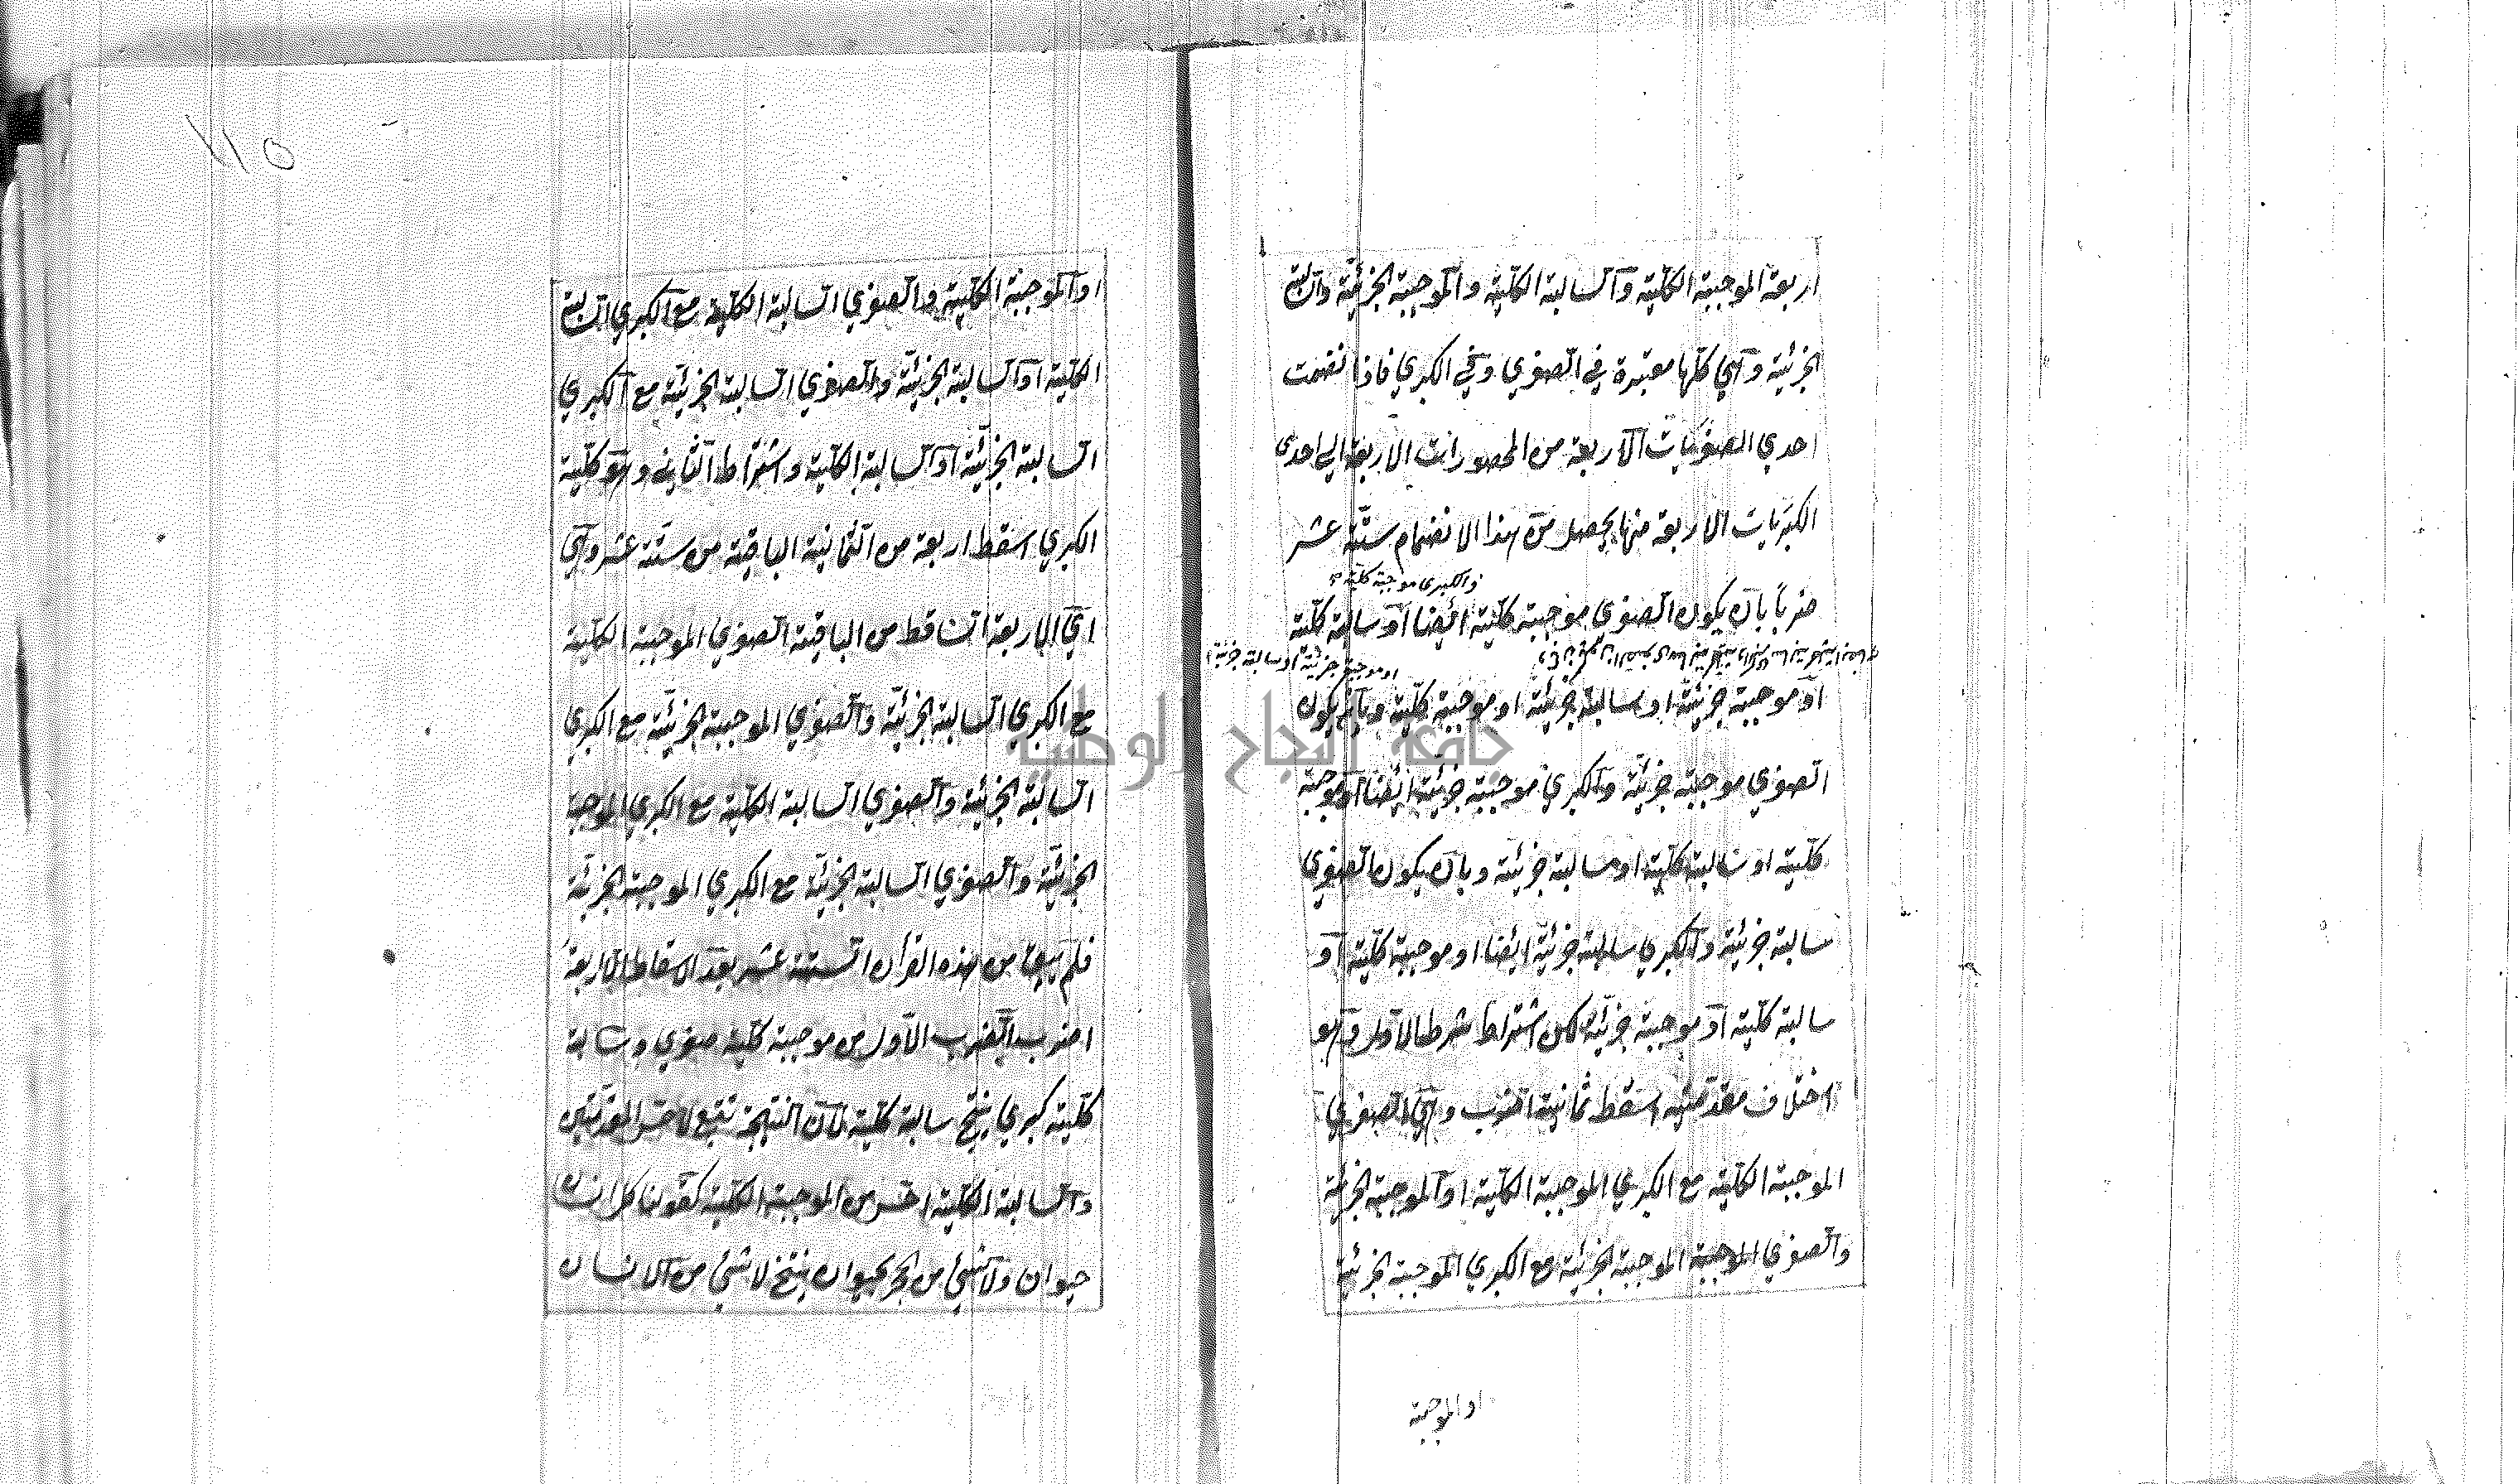 اربعة الموجبة الكلية والسالبة الكلية والموجبة الجزئية والسالبة
الجزئية وهي كلها معتبرة في الصغري وفي الكبري فاذا نضمت
احدي الصغريات الاربعة من المحصورات الاربعة الي احدي
الكبريات الاربعة منها يحصل من هذا الانضمام ستة عشر
والكبري موجبة كلية
ضربا بان يكون الصغري موجبة كلية ايضا او سالبة كلية
او موجبة جزئية او سالبة جزئية
او موجبة جزئية او سالبة جزئية او موجبة كلية وبان يكون
الصغري موجبة جزئية والكبري موجبة جزئية ايضا او موجبة
كلية او سالبة كلية او سالبة جزئية وبان يكون الصغري
سالبة جزئية والكبري سالبة جزئية ايضا او موجبة كلية او
سالبة كلية او موجبة جزئية لكن اشتراط شرط الاول وهو
اختلاف مقدمتيه اسقط ثمانية اضرب وهي الصغري
الموجبة الكلية مع الكبري الموجبة الكلية او الموجبة الجزئية
والصغري الموجبة الموجبة الجزئية مع الكبري الموجبة الجزئية
او الموجبة
١١٥
او الموجبة الكلية والصغري السالبة الكلية مع الكبري السالبة
الكلية او السالبة الجزئية والصغري السالبة الجزئية مع الكبري
السالبة الجزئية او السالبة الكلية واشتراط الثاني وهو كلية
الكبري اسقط اربعة من الثمانية الباقية من ستة عشر وهي
اي الاربعة الساقط من الباقية الصغري الموجبة الكلية
مع الكبري السالبة الجزئية والصغري الموجبة الجزئية مع الكبري
السالبة الجزئية والصغري السالبة الكلية مع الكبري الموجبة
الجزئية والصغري السالبة الجزئية مع الكبري الموجبة الجزئية
فلم يبق من هذه القرأن الستة عشر بعد الاسقاط الا اربعة
اضرب الضرب الاول من موجبة كلية صغري وسالبة
كلية كبري ينتج سالبة كلية لان النتيجة تتبع لاخس المقدمتين
والسالبة الكلية اخس من الموجبة الكلية كقولنا كل انسان
حيوان ولا شئ من الحجر بحيوان ينتج لا شئ من الانسان
جامعة النجاح الوطنية